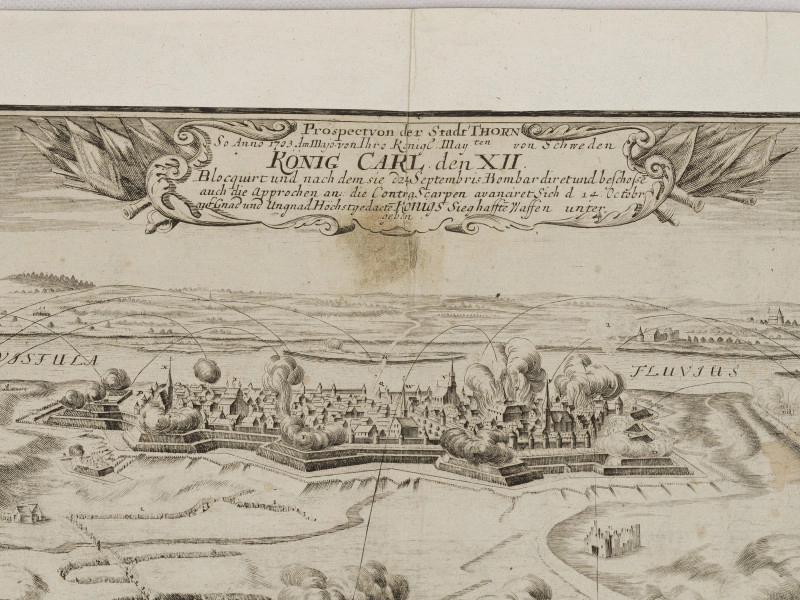 Prospect von der Stadt THORN
So Anno 1703 Im Majo von Ihro Königl Mayten von Schweden
KÖNIG CARL den XII.
Blocquirt und nach dem sie d 24 Septembris Bombardiret und beschosse
auch die Approchen an die Contra Scarpen avanciret Sich d 14 Octobr
auf Gnad und Ungnad Hochstgedacte KÖNIGS Sieghaffte Waffen unter
geben
VISTULA
FLUVIUS